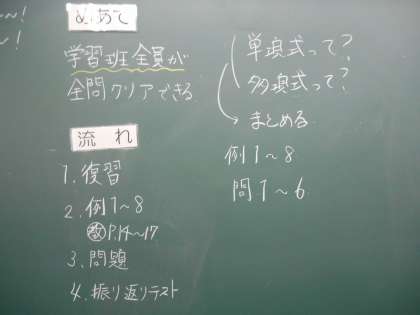 めあて
学習班全員が
全問クリアできる
流れ
1.復習
2.例1〜8
教P.14〜17
3.問題
4.振り返りテスト
単項式って?
多項式って?
まとめる
例1〜8
問1〜6